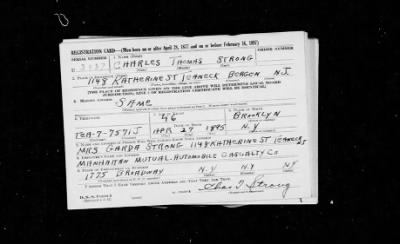 REGISTRATION CARD—(Men born on or after April 28, 1877 and on or before February 16, 1897)
SERIAL NUMBER 1. NAME (Print) ORDER NUMBER
U CHARLES THOMAS STRONG
2. PLACE OF RESIDENCE (Print)
1148 KATHERINE ST TEANECK BERGEN N.J.
[THE PLACE OF RESIDENCE GIVEN ON THE LINE ABOVE WILL DETERMINE LOCAL BOARD
JURISDICTION; LINE 2 OF REGISTRATION CERTIFICATE WILL BE IDENTICAL]
3. MAILING ADDRESS
SAME
4. TELEPHONE 5. AGE IN YEARS 6. PLACE OF BIRTH
46 BROOKLYN
DATE OF BIRTH
TEA-7-7571J APR 27 1895 N.Y.
7. NAME AND ADDRESS OF PERSON WHO WILL ALWAYS KNOW YOUR ADDRESS
MRS GARDA STRONG 1148 KATHERINE ST TEANECK NJ
8. EMPLOYER'S NAME AND ADDRESS
MANHATTAN MUTUAL AUTOMOBILE CASUALTY CO
9. PLACE OF EMPLOYMENT OR BUSINESS
1775 BROADWAY N.Y. N.Y. NY
I AFFIRM THAT I HAVE VERIFIED ABOVE ANSWERS AND THAT THEY ARE TRUE.
D. S. S. Form 1
Chas T Strong